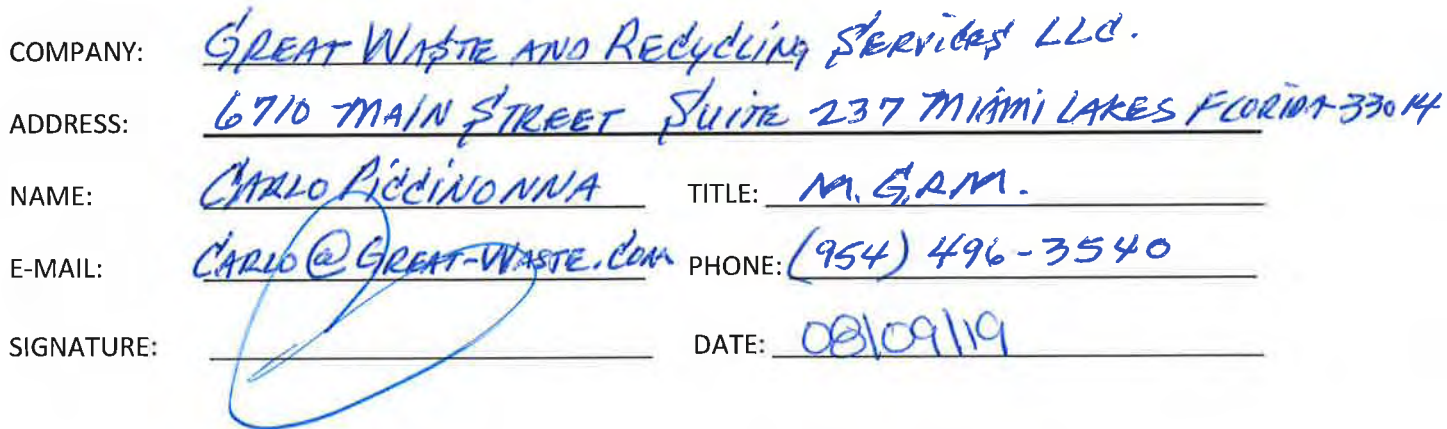 COMPANY: GREAT WASTE AND RECYCLING SERVICES LLC.
ADDRESS: 6710 MAIN STREET SUITE 237 MIAMI LAKES FLORIDA 33014
NAME: CARLO PICCINONNA TITLE: M.GRM.
E-MAIL: CARLO@GREAT-WASTE.COM PHONE: (954) 496-3540
SIGNATURE: DATE: 08/09/19